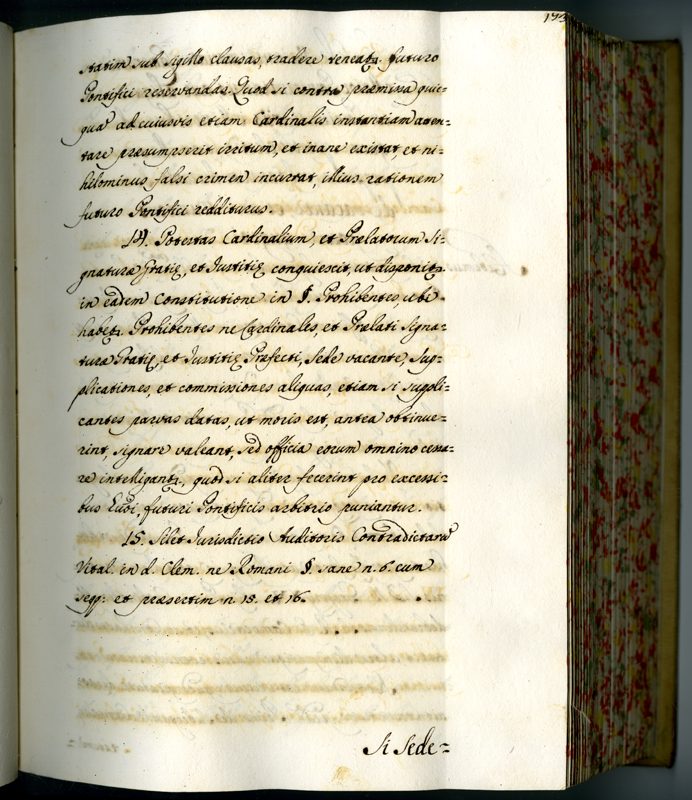 statim sub sigillo clausas, tradere teneatr. futuro
Pontifici reservandas. Quod si contra præmissa quic=
quã ad cuiusvis etiam Cardinalis instantiam atten=
tare præsumpserit irritum, et inane existat, et ni=
hilominus falsi crimen incurrat, illius rationem
futuro Pontifici redditurus.
14. Potestas Cardinalium, et Prælatorum Si=
gnaturæ Gratię, et Iustitię conquiescit, ut disponitr.
in eadem Constitutione in §. Prohibentes, ubi
habetr. Prohibentes ne Cardinales, et Prælati Signa=
turæ Gratię, et Iustitię Præfecti, Sede vacante, Sup=
plicationes, et commissiones aliquas, etiam si suppli=
cantes parvas datas, ut moris est, antea obtinue=
rint, signare valeant, sed officia eorum omnino cessa=
re intelligantr., quod si aliter fecerint pro excessi=
bus huõi, futuri Pontificis arbitrio puniantur.
15. Silet Jurisdictio Auditoris Contradictarũ
Vital. in d. Clem. ne Romani §. sane n. 6. cum
seqq: et præsertim n. 15. et 16.
Si Sede=